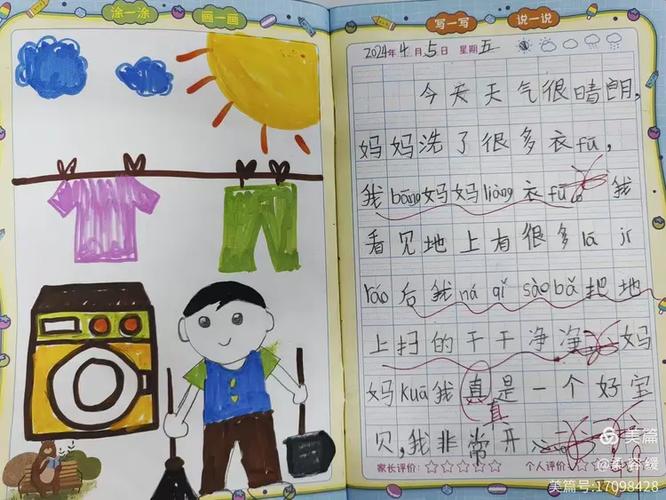 涂一涂 画一画
写一写 说一说
2024年4月5日 星期五
今天天气很晴朗,
妈妈洗了很多衣fū,
我bāng妈妈liàng衣fū。我
看见地上有很多lā jī
ráo后我ná qǐ sàobǎ把地
上扫的干干净净。妈
妈Kuā我真是一个好宝
真
贝,我非常开心
家长评价:☆☆☆☆☆ 个人评价:☆☆☆☆☆
美篇
美篇号:17098428